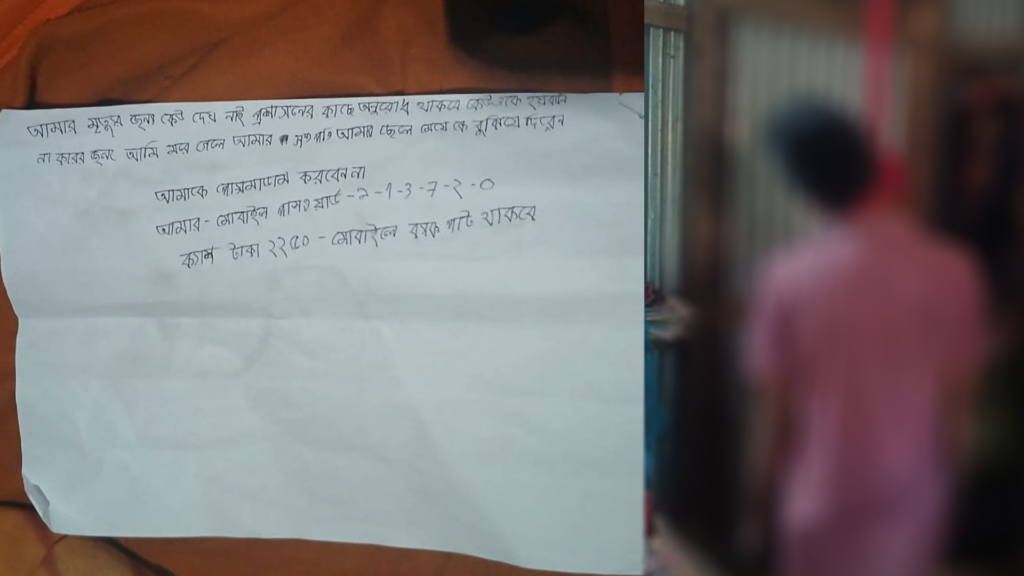 আমার মৃত্যুর জন্য কেউ দোষ নাই প্রশাসনের কাছে অনুরোধ থাকবে কেউকে হয়রান
না করার জন্য আমি মরে গেলে আমার আমার ছেলে মেয়ে কে বুঝিয়ে দিবেন
আমাকে পোসমাডাম করবেন না
আমার - মোবাইল পাসওয়ার্ড - 2 - 1 - 3 - 7 - 2 - 0
ক্যাশ টাকা ২২৫০ - মোবাইলে থাকবে